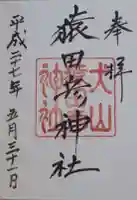 奉拝
猿田彦神社
平成二十七年 五月三十一日
大山
神社